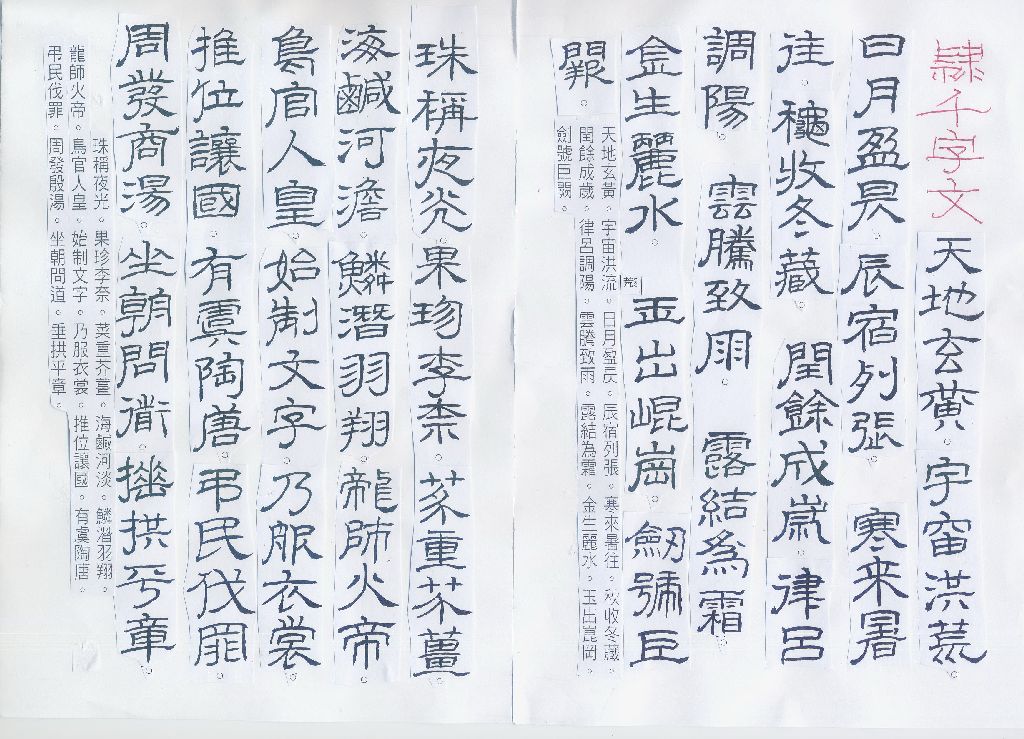 隸千字文
天地玄黃。宇宙洪荒。
日月盈昃。辰宿列張。寒来暑
往。穐收冬藏。閏餘成歲。律呂
調陽。雲騰致雨。露結爲霜
金生麗水。玉出崐崗。劒號巨
闕。
天地玄黃。宇宙洪流。日月盈昃。辰宿列張。寒來暑往。秋收冬藏。
荒
閏餘成歲。律呂調陽。雲騰致雨。露結為霜。金生麗水。玉出崑岡。
劍號巨闕。
珠稱夜光。果珍李柰。菜重芥薑。
海鹹河澹。鱗潛羽翔。龍師火帝。
鳥官人皇。始制文字。乃服衣裳。
推位讓國。有虞陶唐。弔民伐罪。
周發商湯。坐朝問道。垂拱平章。
珠稱夜光。果珍李奈。菜重芥薑。海鹹河淡。鱗潛羽翔。
龍師火帝。鳥官人皇。始制文字。乃服衣裳。推位讓國。有虞陶唐。
弔民伐罪。周發殷湯。坐朝問道。垂拱平章。